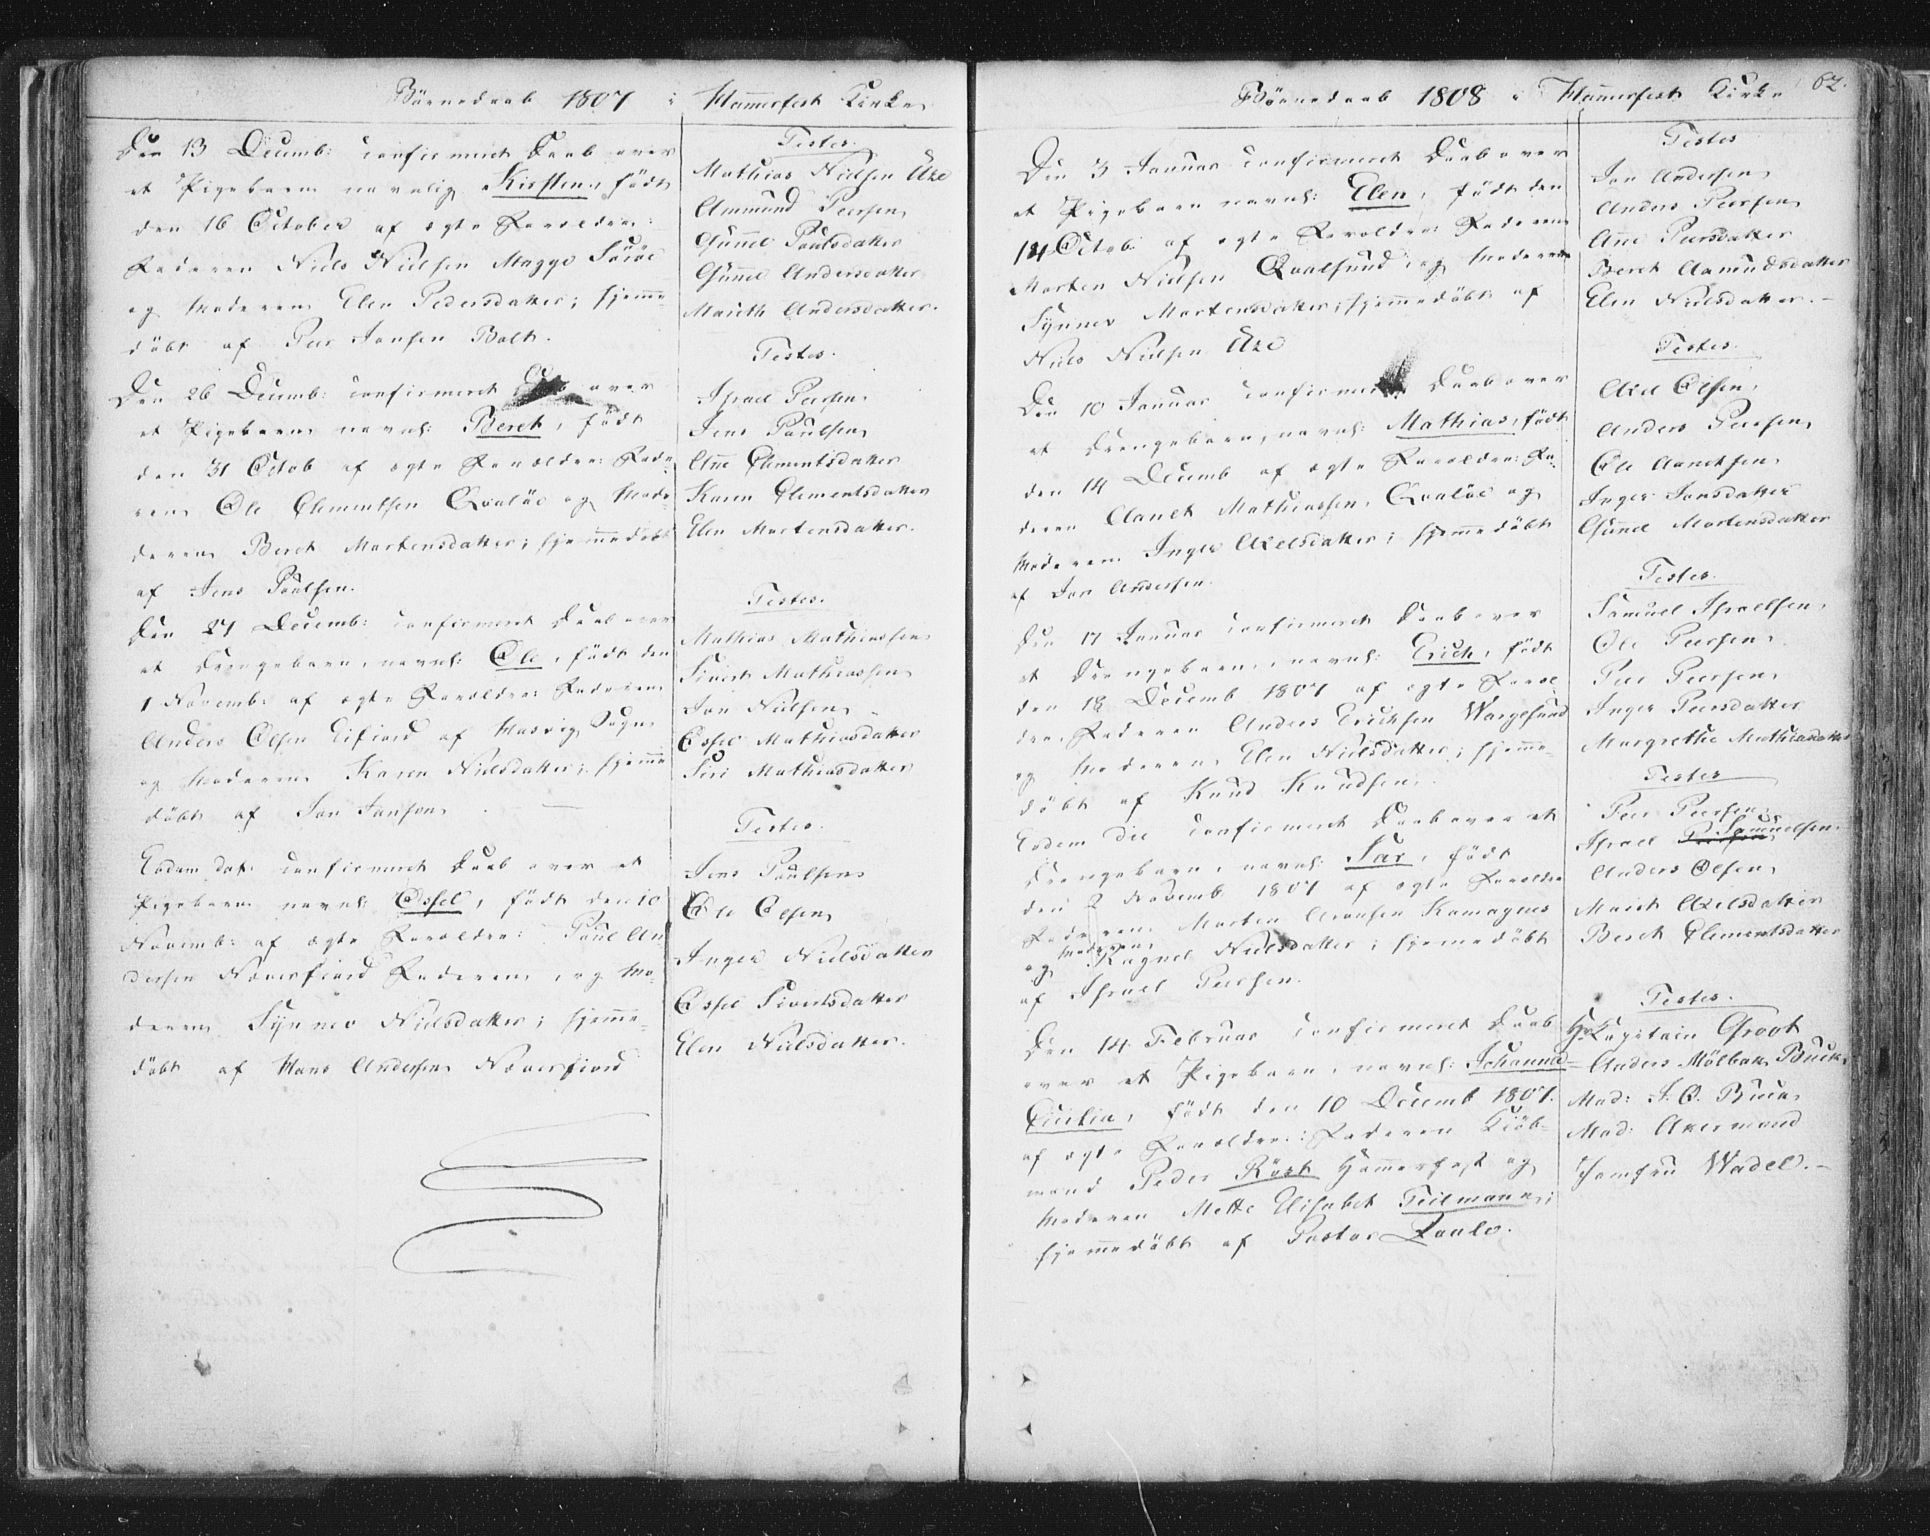 Börnedaab 1807 i Hammerfest Kirke
Den 13 Decemb: confirmeret Daab over
et Pigebarn navnlig Kirsten, född
den 16 October af ægte Forældre:
Faderen Niels Nielsen Magge Söröe
og Moderen Elen Pedersdatter; hjemme
döbt af Peer Jonsen Bolt.
Den 26 Decemb: confirmeret Daab over
et Pigebarn navnl: Beret, född
den 31 Octob af ægte Forældre: Fade
ren Ole Clementsen Qvalöe og Mo
deren Beret Mortensdatter; hjemmedöbt
af Jens Poulsen.
Den 27 Decemb: confirmeret Daab over
et Drengebarn, navnl: Ole, född den
1 Novemb: af ægte Forældre: Faderen
Anders Olsen Eifiord af Masvig Sogn
og Moderen Karen Nielsdatter; hjemme
döbt af Jon Jonsen
Eodem dat: confirmeret Daab over et
Pigebarn navnl: Ossel, född den 10
Novemb: af ægte Forældre: Poul An
dersen Næverfiord Faderen, og Mo-
deren Synnev Nielsdatter; hjemme-
döbt af Hans Andersen Næverfiord
Testes.
Mathias Nielsen
Ammund Peersen
Gunnel Poulsdatter
Gunnel Andersdatter
Marith Andersdatter.
Testes.
Israel Peersen
Jens Poulsen
Ane Clementsdatter
Karen Clementsdatter
Elen Mortensdatter.
Testes.
Mathias Mathiassen
Sivert Mathiassen
Jon Nielsen
Ossel Mathiasdatter
Siri Mathiasdatter
Testes.
Jens Poulsen
Ole Olsen
Inger Nielsdatter
Ossel Sivertsdatter
Elen Nielsdatter.
Börnedaab 1808 i Hammerfest Kirke 62.
Den 3 Januar confirmeret Daab over
et Pigebarn navnl: Elen, född den
14 Octob af ægte Forældre: Faderen
Morten Nielsen Qvalsund, og Moderen
Synnev Mortensdatter; hjemmedöbt af
Niels Nielsen
Den 10 Januar confirmeret Daab over
et Drengebarn, navnl: Mathias, född
den 14 Decemb af ægte Forældre: Fa-
deren Aanet Mathiassen, Qvalöe og
Moderen Inger Axelsdatter; hjemmedöbt
af Jon Andersen.
Den 17 Januar confirmeret Daab over
et Drengebarn, navnl: Erich, född
den 18 Decemb 1807 af ægte Foræl
dre. Faderen Anders Erichsen Wargesund
og Moderen Elen Nielsdatter; hjemme
döbt af Knud Knudsen.
Eodem die confirmeret Daab over et
Drengebarn, navnl: , född
den 2 Novemb 1807 af ægte Forældre
Faderen Morten Kamagnes
og Moderen Ragnel Nielsdatter; hjemmedöbt
af Israel Peersen.
Den 14 Februar confirmeret Daab
over et Pigebarn, navnl: Johanna-
Cicilia, född den 10 Decemb 1807.
af ægte Forældre: Faderen Kiöb-
mand Peder Hammerfest og
Moderen Mette Elisabet Teilmann;
hjemmedöbt af Pastor
Testes
Jon Andersen
Anders Peersen
Ane Peersdatter
Beret Aamundsdatter
Elen Nielsdatter.
Testes.
Axel Olsen,
Anders Peersen,
Ole Aanetsen
Inger Jonsdatter
Gunnel Mortensdatter
Testes.
Samuel Israelsen,
Ole Peersen,
Peer Peersen,
Inger Peersdatter
Margrethe Mathiasdatter
Testes
Peer Peersen
Israel Samuelsen
Anders Olsen,
Marit Axelsdatter
Beret Clementsdatter
Testes.
Hr Kapitain Groot
Anders Mölbak Buck
Mad: J. O. Buck
Mad: Akermand
Jomfru Wadel.